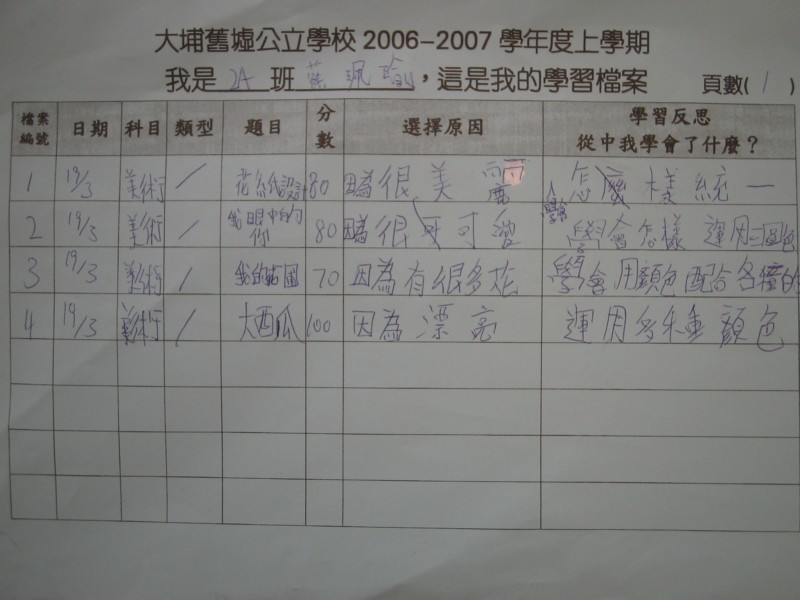 大埔舊墟公立學校 2006-2007 學年度上學期
我是 2A 班 葉珮瑜，這是我的學習檔案 頁數( 1 )
檔案編號 日期 科目 類型 題目 分數 選擇原因 學習反思 從中我學會了什麼？
1 19/3 美術 / 花紙設計 80 因為很美麗 學怎樣統一
2 19/3 美術 / 我眼中的你 80 因為很可愛 學會怎樣運用三圓色
3 19/3 美術 / 我的 70 因為有很多花 學會用顏色配合各種的
4 19/3 美術 / 大西瓜 100 因為漂亮 運用多種顏色